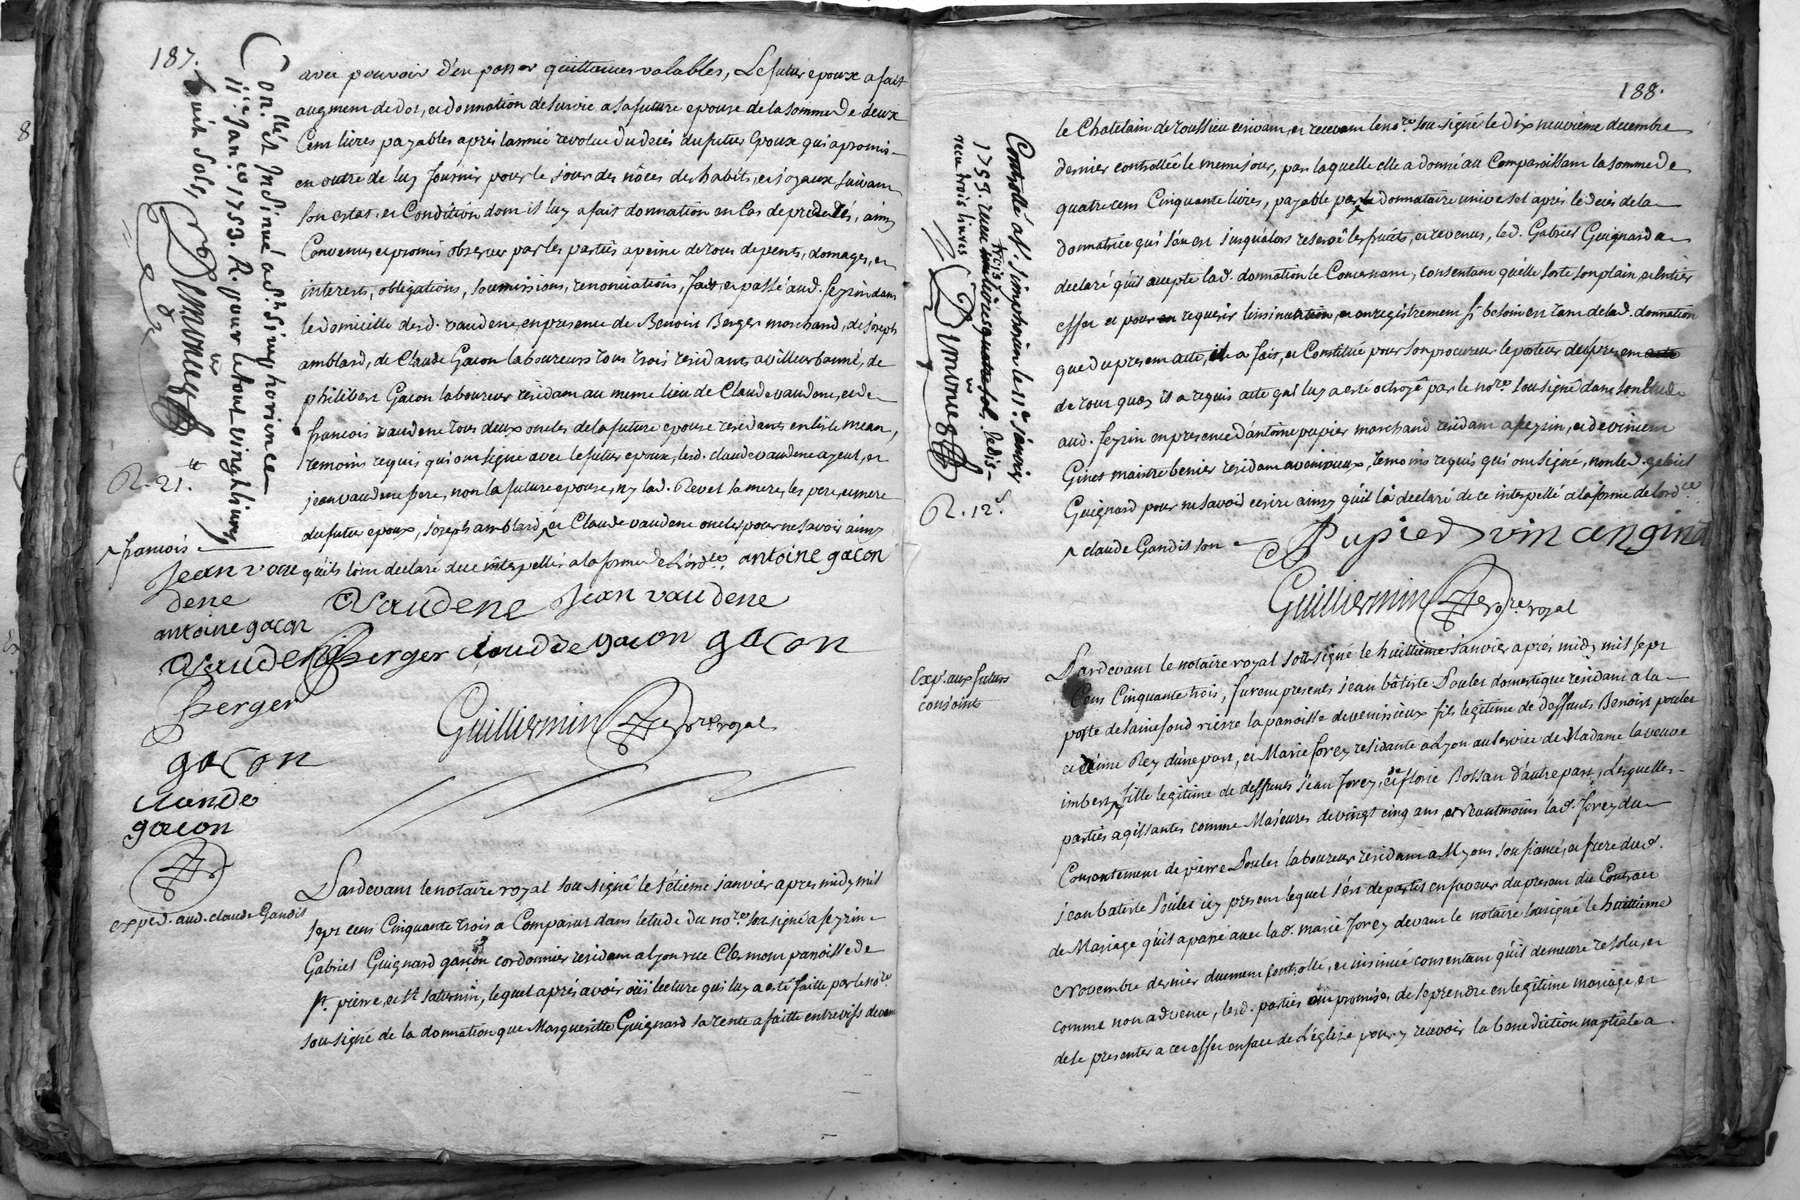 187.
Con.lle et Insinué a St. Simphorien ce
11e. Janv. 1753. R. pour le tout vingt livres
huit sols,
R. 21.
avec pouvoir d'en passer quittances valables, Le futur epoux a fait
augment de dot, et donnation de survie a sa future epouse de la somme de deux
Cent livres payables aprés l'année revolue du decés du futur Epoux qui a promis
en outre de luy fournir pour le jour des nôces des habits, et joyaux suivant
son estat et Condition dont il luy a fait donnation en Cas de predecés, ainsy
Convenu et promis observer par les parties a peine de tous depents, domages, et
interests, obligations, soumissions, renonciations, fait, et passé aud. feyzin dans
le domicille desd. vaudene, en presence de Benoist Berger marchand, de joseph
amblard, de Claude Gacon laboureurs tous trois residants a villeurbanne, de
philibert Gacon laboureur residant au meme lieu de Claude vaudene, et de
francois vaudene tous deux oncles de la future epouse residants en
temoins requis qui ont signé avec le futur epoux, lesd. claude vaudene ayeul, et
jean vaudene pere, non la future epouse, ny lad. Revet sa mere, les pere, et mere
du futur epoux, joseph amblard, et Claude vaudene oncles pour ne savoir ainsy
qu'ils l'ont declaré de ce interpellés a la forme de l'ord.ce antoine gacon
^ francois
Jean vau
dene
antoine gacon
vaudene
Berger
gacon
claude
gacon
vaudene Jean vaudene
Berger claudde gacon gacon
Guilliermin no.re royal
exped. aud. claude Gandit
Pardevant le notaire royal sousigné le sétieme janvier apres midy mil
sept cens Cinquante trois a Comparut dans l'etude du no.re sousigné a feyzin
Gabriel Guignard garçon cordonnier residant a Lyon rue Clermont paroisse de
St. pierre, et St. saturnin, lequel aprés avoir oüi lecture qui luy a esté faitte par le no.re
sousigné de la donnation que Margueritte Guignard sa tente a faitte entre vifs devant
188.
Controllé a St. Simphorien le 11e. Janvier
1753. recu trois
recu trois livres
R. 12.
le Chatelain de roussieu ecrivant, et recevant le no.re sousigné le dix neuvieme decembre
dernier controllée le meme jour, par laquelle elle a donné au Comparoissant la somme de
quatre cens Cinquante livres, payable par le donnataire universel aprés le decés de la
donnatrice qui s'en est jusqu'alors reservé les fruits, et revenus, led. Gabriel Guignard a
declaré qu'il accepte lad. donnation le Concernant, consentant qu'elle sorte son plain, et entier
effet et pour en requerir l'insinuation, et enregistrement si besoin est tant de lad. donnation
que du present acte, il a fait, et Constitué pour son procureur le porteur du present
de tout quoy il a requis acte qui luy a esté octroyé par le no.re sousigné dans son Etude
aud. feyzin en presence d'antoine pupier marchand residant a feyzin, et de vincent
Ginet maitre residant a venissieux, temoins requis qui ont signé, non led. gabriel
Guignard pour ne savoir ecrire ainsy qu'il l'a declaré de ce interpellé a la forme de l'ord.ce
^ claude Gandit son
Pupier vincen ginet
Guilliermin no.re royal
Exp.é aux futurs
conjoints
Pardevant le notaire royal sousigné le huittieme janvier aprés midy mil sept
Cens Cinquante trois, furent presents jean bâtiste Poulet domestique residant a la
poste de saint fond rierre la paroisse de venissieux fils legitime de deffunts Benoist poulet
et Rey d'une part, et Marie forey residante a Lyon au service de Madame la veuve
imbert fille legitime de deffunts jean forey, et de florie Bossan d'autre part, Lesquelles
parties agissantes comme Majeures de vingt cinq ans, et neautmoins lad. forey du
Consentement de pierre Poulet laboureur residant a Myons son fiancé, et frere dud.
jean batiste Poulet icy present lequel s'est departit en faveur du present du Contract
de Mariage qu'il a passé avec lad. marie forey devant le notaire sousigné le huittieme
novembre dernier duement controllé, et insinué consentant qu'il demeure resolu, et
comme non advenu, lesd. parties ont promises de se prendre en legitime mariage, et
de se presenter a cet effet en face de L'eglize pour y recevoir la benediction nuptiale a